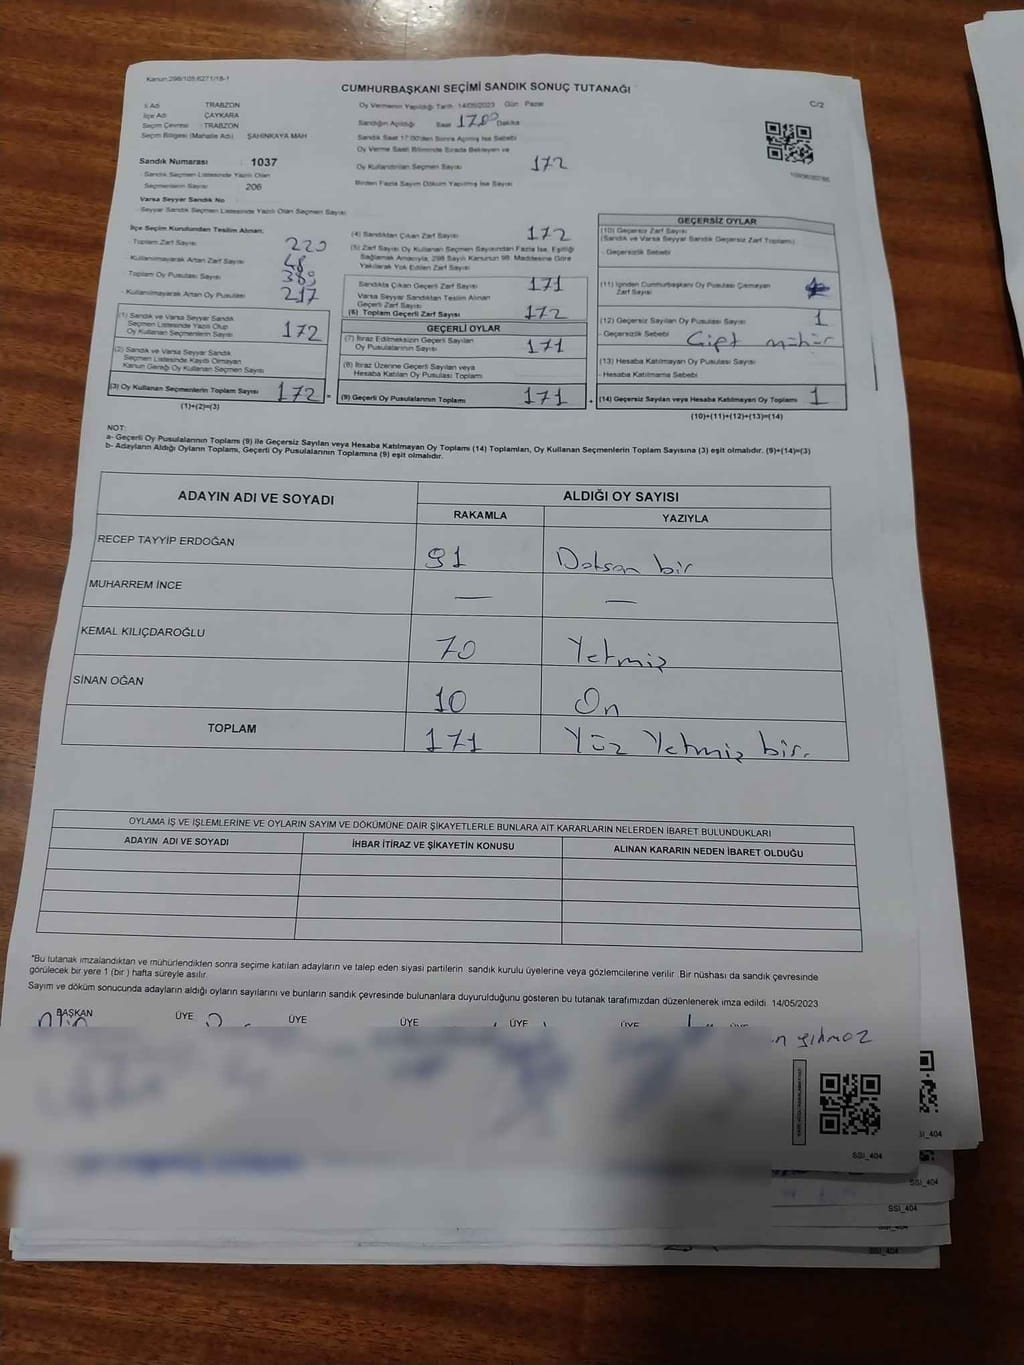 Kanun:298/105;6271/18-1
CUMHURBAŞKANI SEÇİMİ SANDIK SONUÇ TUTANAĞI
C/2
İl Adı TRABZON
İlçe Adı ÇAYKARA
Seçim Çevresi : TRABZON
Seçim Bölgesi (Mahalle Adı) ŞAHİNKAYA MAH
Sandık Numarası 1037
Sandık Seçmen Listesinde Yazılı Olan
Seçmenlerin Sayısı 206
Varsa Seyyar Sandık No
Seyyar Sandık Seçmen Listesinde Yazılı Olan Seçmen Sayısı
Oy Vermenin Yapıldığı Tarih 14/05/2023 Gün Pazar
Sandığın Açıldığı Saat 17:00 Dakika
Sandık Saat 17:00'den Sonra Açılmış İse Sebebi
Oy Verme Saati Bitiminde Sırada Bekleyen ve
Oy Kullandırılan Seçmen Sayısı 172
Birden Fazla Sayım Döküm Yapılmış İse Sayısı
İlçe Seçim Kurulundan Teslim Alınan,
Toplam Zarf Sayısı 220
Kullanılmayarak Artan Zarf Sayısı 48
Toplam Oy Pusulası Sayısı 389
- Kullanılmayarak Artan Oy Pusulası 217
(1) Sandık ve Varsa Seyyar Sandık
Seçmen Listesinde Yazılı Olup
Oy Kullanan Seçmenlerin Sayısı 172
(2) Sandık ve Varsa Seyyar Sandık
Seçmen Listesinde Kaydı Olmayan
Kanun Gereği Oy Kullanan Seçmen Sayısı
(3) Oy Kullanan Seçmenlerin Toplam Sayısı 172 =
(1)+(2)=(3)
(4) Sandıktan Çıkan Zarf Sayısı 172
(5) Zarf Sayısı Oy Kullanan Seçmen Sayısından Fazla İse, Eşitliği
Sağlamak Amacıyla, 298 Sayılı Kanunun 98. Maddesine Göre
Yakılarak Yok Edilen Zarf Sayısı
Sandıkta Çıkan Geçerli Zarf Sayısı 171
Varsa Seyyar Sandıktan Teslim Alınan
Geçerli Zarf Sayısı
(6) Toplam Geçerli Zarf Sayısı 172
GEÇERLİ OYLAR
(7) İtiraz Edilmeksizin Geçerli Sayılan
Oy Pusulalarının Sayısı 171
(8) İtiraz Üzerine Geçerli Sayılan veya
Hesaba Katılan Oy Pusulası Toplamı
(9) Geçerli Oy Pusulalarının Toplamı 171 +
GEÇERSİZ OYLAR
(10) Geçersiz Zarf Sayısı
(Sandık ve Varsa Seyyar Sandık Geçersiz Zarf Toplamı)
- Geçersizlik Sebebi
(11) İçinden Cumhurbaşkanı Oy Pusulası Çıkmayan
Zarf Sayısı
(12) Geçersiz Sayılan Oy Pusulası Sayısı 1
- Geçersizlik Sebebi Çift mühür
(13) Hesaba Katılmayan Oy Pusulası Sayısı
- Hesaba Katılmama Sebebi
(14) Geçersiz Sayılan veya Hesaba Katılmayan Oy Toplamı 1
(10)+(11)+(12)+(13)=(14)
NOT:
a- Geçerli Oy Pusulalarının Toplamı (9) ile Geçersiz Sayılan veya Hesaba Katılmayan Oy Toplamı (14) Toplamları, Oy Kullanan Seçmenlerin Toplam Sayısına (3) eşit olmalıdır. (9)+(14)=(3)
b- Adayların Aldığı Oyların Toplamı, Geçerli Oy Pusulalarının Toplamına (9) eşit olmalıdır.
ADAYIN ADI VE SOYADI ALDIĞI OY SAYISI
RAKAMLA YAZIYLA
RECEP TAYYİP ERDOĞAN 91 Doksan bir
MUHARREM İNCE — —
KEMAL KILIÇDAROĞLU 70 Yetmiş
SİNAN OĞAN 10 On
TOPLAM 171 Yüz Yetmiş bir.
OYLAMA İŞ VE İŞLEMLERİNE VE OYLARIN SAYIM VE DÖKÜMÜNE DAİR ŞİKAYETLERLE BUNLARA AİT KARARLARIN NELERDEN İBARET BULUNDUKLARI
ADAYIN ADI VE SOYADI İHBAR İTİRAZ VE ŞİKAYETİN KONUSU ALINAN KARARIN NEDEN İBARET OLDUĞU
*Bu tutanak imzalandıktan ve mühürlendikten sonra seçime katılan adayların ve talep eden siyasi partilerin sandık kurulu üyelerine veya gözlemcilerine verilir .Bir nüshası da sandık çevresinde
görülecek bir yere 1 (bir ) hafta süreyle asılır.
Sayım ve döküm sonucunda adayların aldığı oyların sayılarını ve bunların sandık çevresinde bulunanlara duyurulduğunu gösteren bu tutanak tarafımızdan düzenlenerek imza edildi. 14/05/2023
BAŞKAN ÜYE ÜYE ÜYE ÜYE ÜYE ÜYE
yılmaz
SSI_404
SSI_404
SSI_404
SSI_404